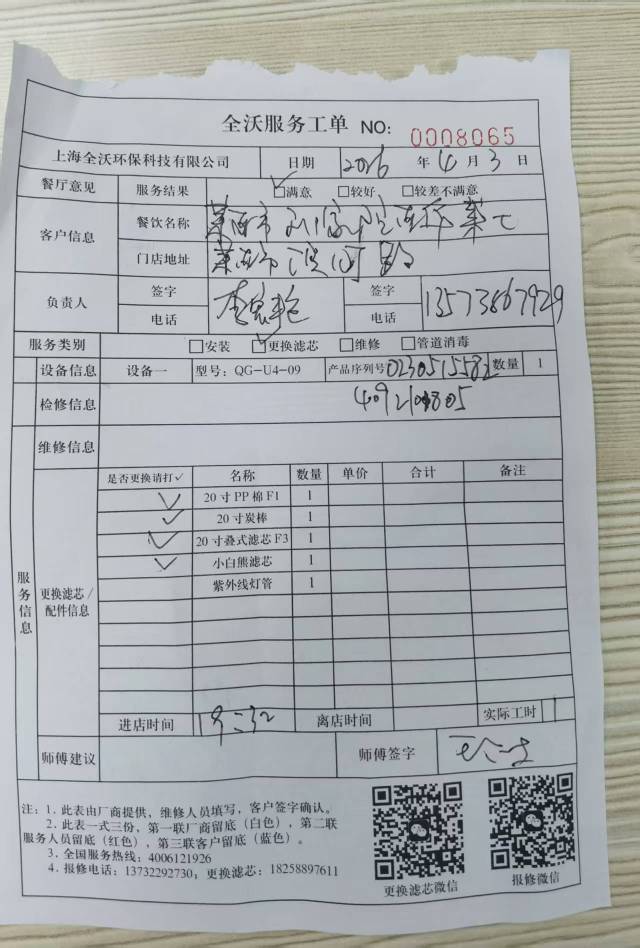 全沃服务工单 NO: 0008065
上海全沃环保科技有限公司 日期 2026 年 4 月 3 日
餐厅意见 服务结果 ✓□满意 □较好 □较差不满意
客户信息 餐饮名称 莱西市
门店地址 莱西市
负责人 签字 签字
电话 电话 13573867929
服务类别 □安装 ☑更换滤芯 □维修 □管道消毒
设备信息 设备一 型号: QG-U4-09 产品序列号 0230515582 数量 1
检修信息
维修信息
是否更换请打✓ 名称 数量 单价 合计 备注
✓ 20寸PP棉F1 1
✓ 20寸炭棒 1
✓ 20寸叠式滤芯F3 1
✓ 小白熊滤芯 1
紫外线灯管 1
服务信息
更换滤芯/
配件信息
进店时间 离店时间 实际工时 1
师傅建议 师傅签字
注: 1. 此表由厂商提供，维修人员填写，客户签字确认。
2. 此表一式三份，第一联厂商留底（白色），第二联
服务人员留底（红色），第三联客户留底（蓝色）。
3. 全国服务热线: 4006121926
4. 报修电话: 13732292730; 更换滤芯: 18258897611
更换滤芯微信 报修微信